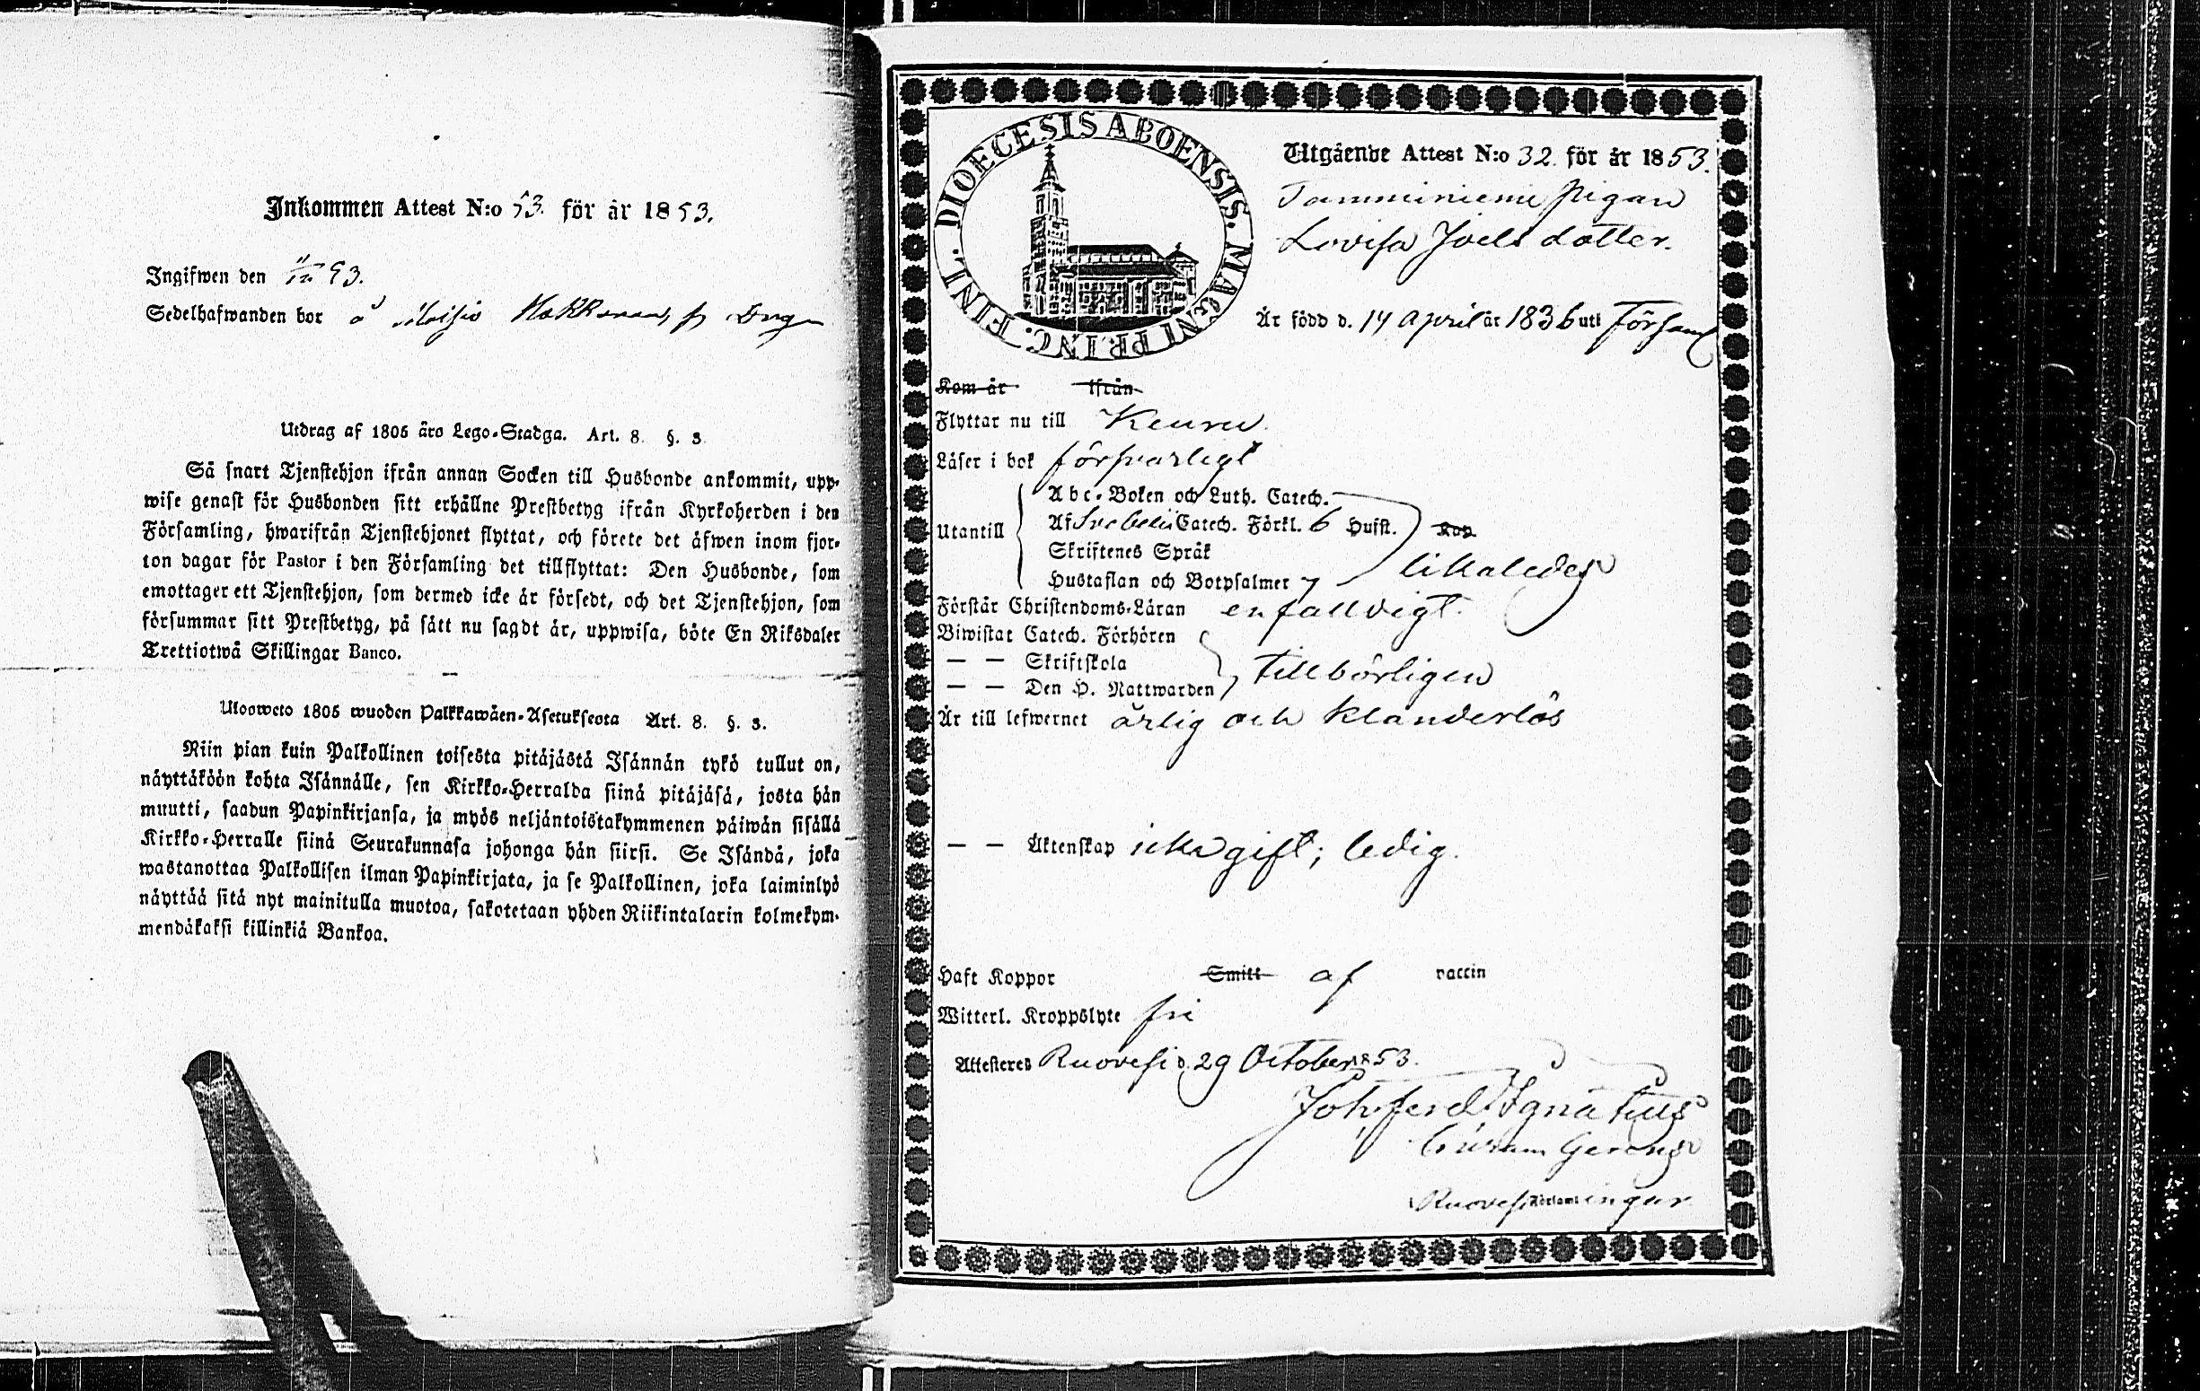 Inkommen Attest N:o 53. för år 1853.
Ingifwen den 11/12 53.
Sedelhafwanden bor å
Utdrag af 1805 års Lego-Stadga. Art. 8. §. 3.
Så snart Tjenstehjon ifrån annan Socken till Husbonde ankommit, upp-
wise genast för Husbonden sitt erhållne Prestbetyg ifrån Kyrkoherden i den
Församling, hwarifrån Tjenstehjonet flyttat, och förete det äfwen inom fjor-
ton dagar för Pastor i den Församling det tillflyttat: Den Husbonde, som
emottager ett Tjenstehjon, som dermed icke är försedt, och det Tjenstehjon, som
försummar sitt Prestbetyg, på sätt nu sagdt är, uppwisa, böte En Riksdaler
Trettiotwå Skillingar Banco.
Uloosweto 1805 wuoden Palkkawäen-Asetuksesta Art. 8. §. 3.
Niin pian kuin Palkollinen toisesta pitäjästä Isännän tykö tullut on,
näyttäköön kohta Isännälle, sen Kirkko-Herralda siinä pitäjäsä, josta hän
muutti, saadun Papinkirjansa, ja myös neljäntoistakymmenen päiwän sisällä
Kirkko-Herralle siinä Seurakunnasa johonga hän siirsi. Se Isändä, joka
wastanottaa Palkollisen ilman Papinkirjata, ja se Palkollinen, joka laiminlyö
näyttää sitä nyt mainitulla muotoa, sakotetaan yhden Riikintalarin kolmekym-
mendäkaksi killinkiä Bankoa.
DIOECESIS ABOENSIS. MAGNI PRINC. FINL.
Utgående Attest N:o 32. för år 1853.
Tamminiemi pigan
Lovisa Joels dotter.
Är född d. 14 April år 1836 uti Församl
Kom år ifrån
Flyttar nu till Keuru.
Läser i bok försvarligt
Utantill
Abc-Boken och Luth. Catech.
Af Svebelii Catech. Förkl. 6 Hufst.
Skriftenes Språk
Hustaflan och Botpsalmer 7
likaledes
Förstår Christendoms-Läran enfalldigt.
Biwistat Catech. Förhören
— — Skriftskola
— — Den H. Nattwarden
tillbörligen
Är till lefwernet ärlig och klanderlös
— — Äktenskap icke gift; ledig.
Haft Koppor Smitt af vaccin
Witterl. Kroppslyte fri
Attesteras Ruovesi d. 29 October 1853.
Joh. Ferd. Ignatius
Curam Gerens
Ruovesi Församlingar